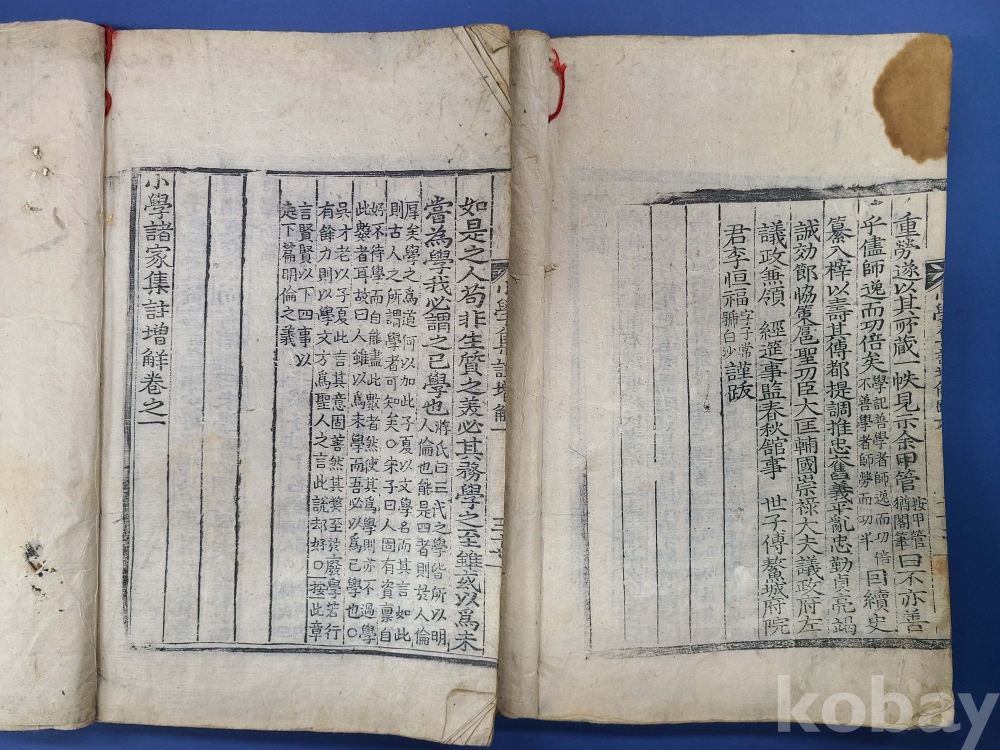 重勞遂以其所藏一帙見示余甲管按甲管猶閣筆曰不亦善
乎儘師逸而功倍矣學記善學者師逸而功倍不善學者師勞而功半回續史
纂入梓以壽其傳都提調推忠奮義平亂忠勤貞亮竭
誠効節協策扈聖功臣大匡輔國崇祿大夫議政府左
議政兼領 經筵事監春秋館事 世子傅鰲城府院
君李恒福字子常號白沙謹跋
小學集註增解一
如是之人苟非生質之美必其務學之至雖或以爲未
嘗為學我必謂之已學也蔣氏曰三代之學皆所以明人倫也能是四者則於人倫
厚矣學之爲道何以加此子夏以文學名而其言如此
則古人之所謂學者可知矣○朱子曰人固有資稟自
好不待學而自能盡此數者然使其爲學則亦不過學
此數者耳故曰人雖以爲未學而吾必以爲已學也○
吳才老以子夏此言其意固善然其弊至於廢學若行
有餘力則以學文方爲聖人之言此說却好○按此章
言賢賢以下四事以
起下篇明倫之義
小學諸家集註增解卷之一
kobay